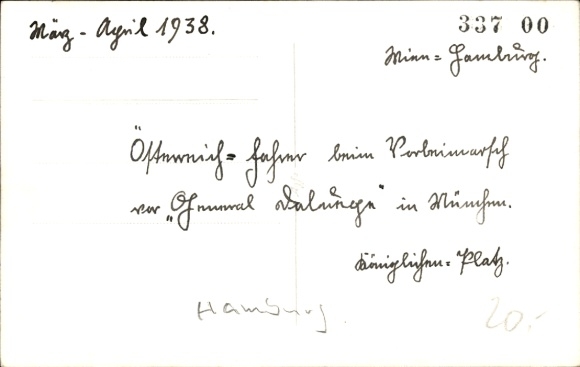 März - April 1938.
337 00
Wien = Hamburg.
Österreich = Fahrer beim Vorbeimarsch
vor „General Daluege" in München.
Königlichen = Platz.
Hamburg.
20.-